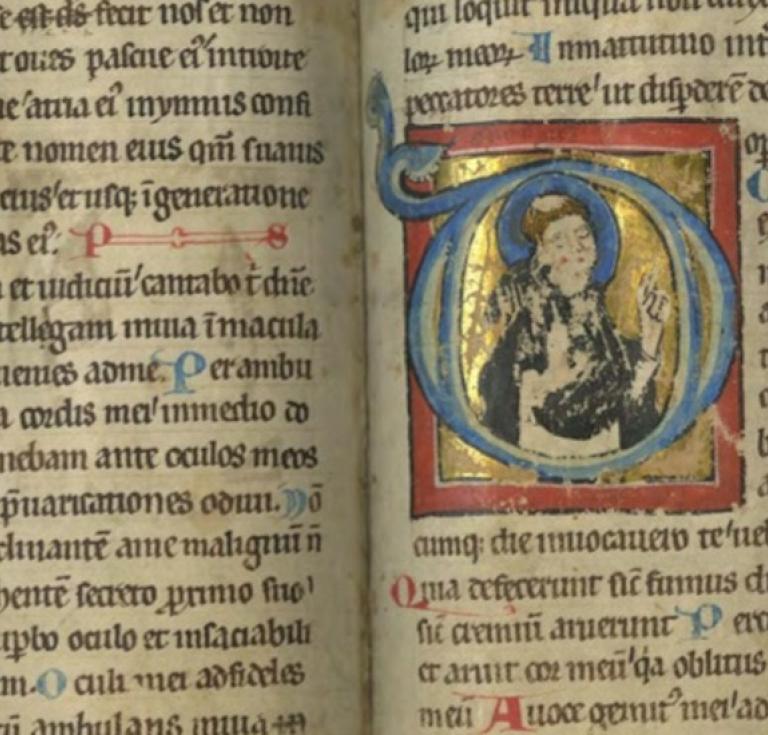 fecit nos et non
oues pascue ei᾽ introite
atria ei᾽ in ymnis confi
nomen eius qm̄ suauis
eius et usq; ī generatione
ei᾽: P S
et iudiciū cantabo t᷒ dn̄e
tellegam in uia īmacula
uenies ad me. Per ambu
cordis mei in medio do
nebam ante oculos meos
p̄uaricationes odiui. Nō
clinantē a me malignū n̄
hentē secreto ꝓximo suo
suꝑbo oculo et insaciabili
m. Oculi mei ad fideles
ambulans in uia in
qui loquit᷒ iniqua non
loꝝ meoꝝ In matutino int᷒
peccatores terre ut disꝑderē de
cumq; die inuocauero te uel
Quia defecerunt sic̄ fumus di
sic̄ cremiū aruerunt Perc
et aruit cor meū q̇a oblitus
meū A uoce gemit᷒ mei ad